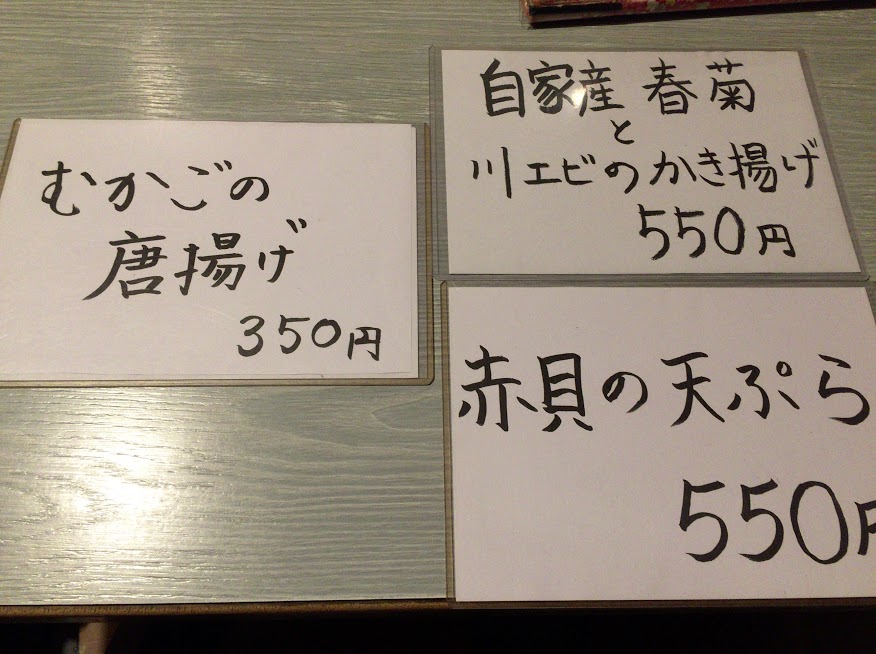 むかごの
唐揚げ
350円
自家産 春菊
と
川エビのかき揚げ
550円
赤貝の天ぷら
550円